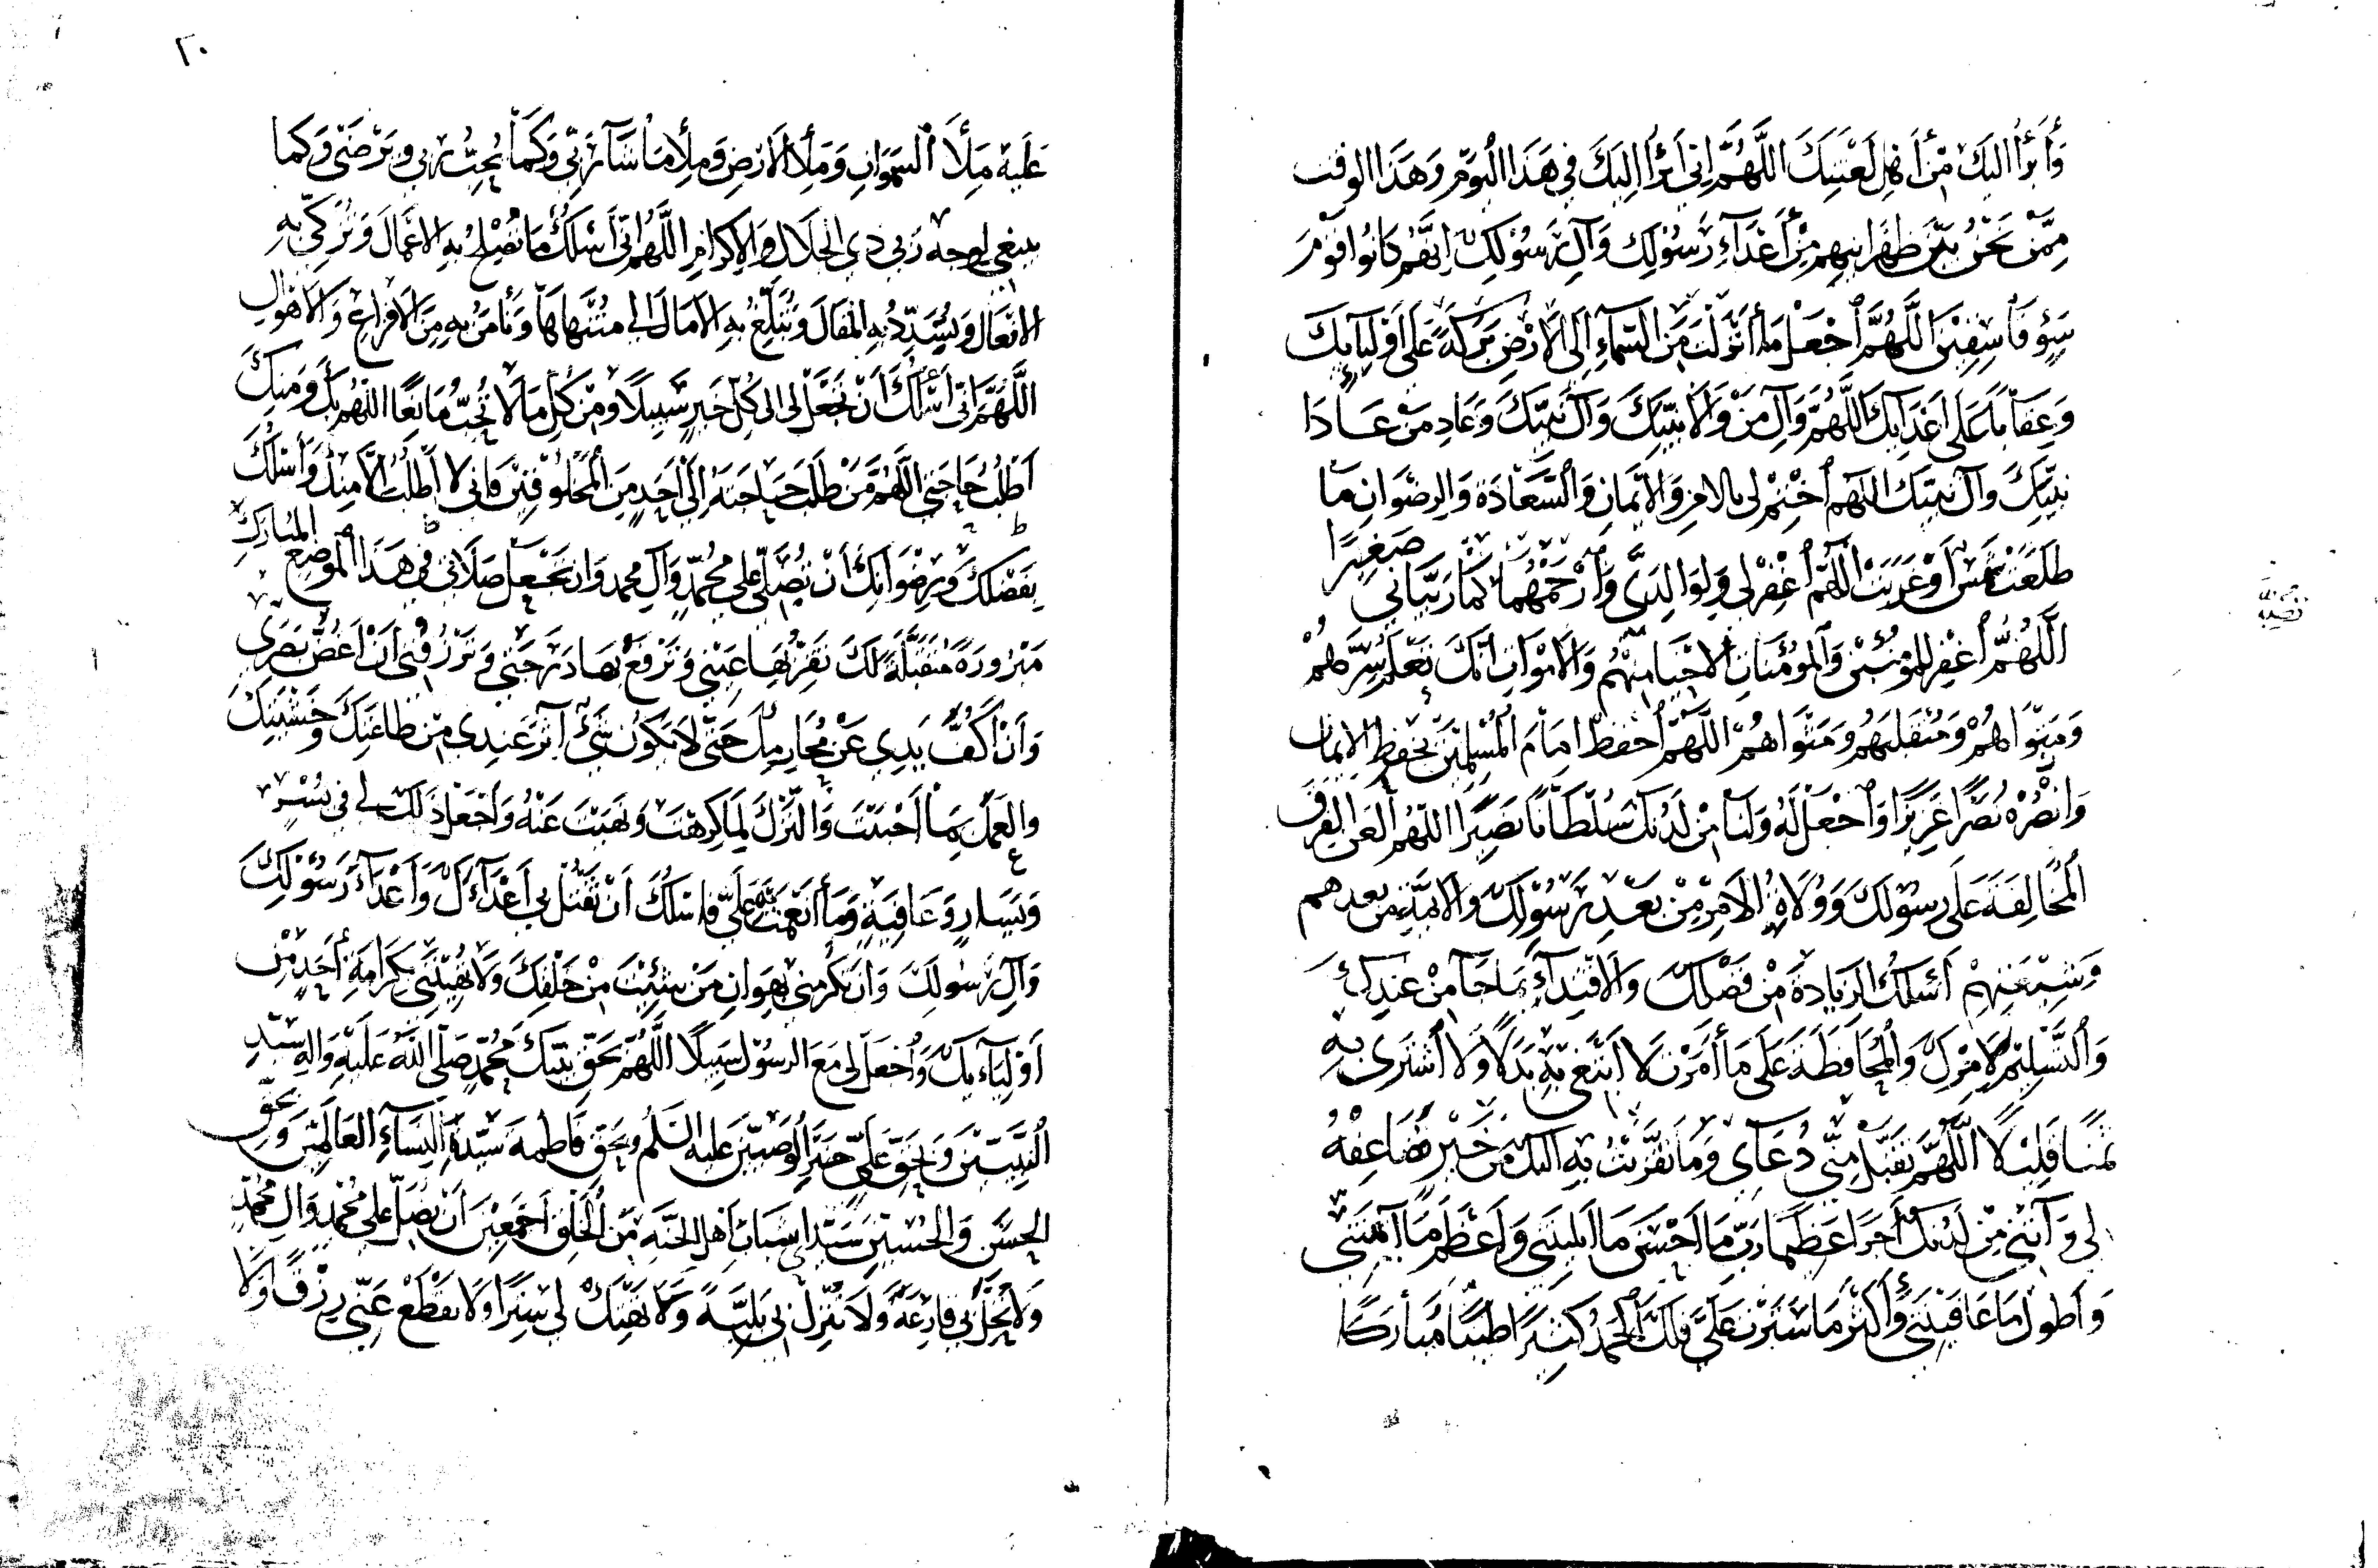 وَأَبْرَأُ إِلَيْكَ مِنْ أَهْلِ لَعْنَتِكَ اللَّهُمَّ إِنِّي أَبْرَأُ إِلَيْكَ فِي هَذَا الْيَوْمِ وَهَذَا الوقت
مِمَّنْ نَحْنُ بَيْنَ ظَهْرَانِيهِمْ مِنْ أَعْدَاءِ رَسُولِكَ وَآلِ رَسُولِكَ إِنَّهُمْ كَانُوا قَوْمَ
سَوْءٍ فَاسِقِينَ اللَّهُمَّ اجْعَلْ مَا أَنْزَلْتَ مِنَ السَّمَاءِ إِلَى الْأَرْضِ بَرَكَةً عَلَى أَوْلِيَائِكَ
وَعِقَابًا عَلَى أَعْدَائِكَ اللَّهُمَّ وَالِ مَنْ وَالَا نَبِيَّكَ وَآلَ نَبِيِّكَ وَعَادِ مَنْ عَادَا
نَبِيَّكَ وَآلَ نَبِيِّكَ اللهم اخْتِمْ لِي بالأمن وَالْإِيمَانِ وَالسَّعَادَةِ وَالرِّضْوَانِ مَا
طَلَعَتْ شَمْسٌ أَوْ غَرَبَتْ اللَّهُمَّ اغْفِرْ لِي وَلِوَالِدَيَّ وَارْحَمْهُمَا كَمَا رَبَّيَانِي صَغِيرًا
اللَّهُمَّ اغْفِرْ لِلْمُؤْمِنِينَ وَالْمُؤْمِنَاتِ الْأَحْيَاءِ مِنْهُمْ وَالْأَمْوَاتِ إِنَّكَ تَعْلَمُ سِرَّهُمْ
وَمُنْقَلَبَهُمْ وَمَثْوَاهُمْ اللَّهُمَّ احْفَظْ إِمَامَ الْمُسْلِمِينَ بِحِفْظِ الإيمان
وَانْصُرْهُ نَصْرًا عَزِيزًا وَاجْعَلْ لَهُ وَلَنَا مِنْ لَدُنْكَ سُلْطَانًا نَصِيرًا اللَّهُمَّ الْعَنِ الْفِرَقَ
الْمُخَالِفَةَ عَلَى رَسُولِكَ وَوُلَاةِ الْأَمْرِ مِنْ بَعْدِ رَسُولِكَ وَالْأَئِمَّةِ مِنْ بعدهم
وَشِيعَتِهِمْ أَسْأَلُكَ الزِّيَادَةَ مِنْ فَضْلِكَ وَالْاقْتِدَاءِ بِمَا جَاءَ مِنْ عِنْدِكَ
وَالتَّسْلِيمَ لِأَمْرِكَ وَالْمُحَافَظَةَ عَلَى مَا أَمَرْتَ لَا أَبْتَغِي بِهِ بَدَلًا وَلَا أَشْتَرِي بِهِ
ثَمَنًا قَلِيلًا اللَّهُمَّ تَقَبَّلْ مِنِّي دُعَائِي وَمَا تَقَرَّبْتُ بِهِ إِلَيْكَ مِنْ خَيْرٍ فَضَاعِفْهُ
لِي وَآتِنِي مِنْ لَدُنْكَ أَجْرًا عَظِيمًا رَبِّ مَا أَحْسَنَ مَا أَبْلَيْتَنِي وَأَعْظَمَ مَا آتَيْتَنِي
وَأَطْوَلَ مَا عَافَيْتَنِي وَأَكْثَرَ مَا سَتَرْتَ عَلَيَّ فَلَكَ الْحَمْدُ كَثِيرًا طَيِّبًا مُبَارَكًا
٢٠
عَلَيْهِ مِلْأَ السَّمَوَاتِ وَمِلْأَ الْأَرْضِ وَمِلْأَ مَا شَاءَ رَبِّي وَكَمَا يُحِبُّ رَبِّي وَيَرْضَى وَكَمَا
ينبغي لوجه رَبِّي ذِي الْجَلَالِ وَالْإِكْرَامِ اللَّهُمَّ إِنِّي أَسْأَلُكَ مَا تُصْلِحُ بِهِ الْأَعْمَالَ وَتُزَكِّي بِهِ
الْأَفْعَالَ وَيُسَدِّدُ بِهِ الْمَقَالَ وَتُبَلِّغُ بِهِ الْآمَالَ إِلَى مُنْتَهَاهَا وَنَأْمَنُ بِهِ مِنَ الْأَفْزَاعِ وَالْأَهْوَالِ
اللَّهُمَّ إِنِّي أَسْأَلُكَ أَنْ تَجْعَلَ لِي إِلَى كُلِّ خَيْرٍ سَبِيلًا وَمِنْ كُلِّ مَا لَا تُحِبُّ مَانِعًا اللَّهُمَّ بِكَ وَمِنْكَ
أَطْلُبُ حَاجَتِي اللَّهُمَّ مَنْ طَلَبَ حَاجَتَهُ إِلَى أَحَدٍ مِنَ الْمَخْلُوقِينَ فَإِنِّي لَا أَطْلُبُ إِلَّا مِنْكَ وَأَسْأَلُكَ
بِفَضْلِكَ وَرِضْوَانِكَ أَنْ تُصَلِّيَ عَلَى مُحَمَّدٍ وَآلِ مُحَمَّدٍ وَأَنْ تَجْعَلَ صَلَاتِي فِي هَذَا الْمَوْضِعِ المُبَارَكِ
مَبْرُورَةً مُتَقَبَّلَةً لَكَ تَقِرُّ بِهَا عَيْنِي وَتَرْفَعُ بِهَا دَرَجَتِي وَتَرْزُقُنِي أَنْ أَغُضَّ بَصَرِي
وَأَنْ أَكُفَّ يَدِي عَنْ مَحَارِمِكَ حَتَّى لَا يَكُونَ شَيْءٌ آثَرَ عِنْدِي مِنْ طَاعَتِكَ وَخَشْيَتِكَ
وَالْعَمَلِ بِمَا أَحْبَبْتَ وَالتَّرْكَ لِمَا كَرِهْتَ وَنَهَيْتَ عَنْهُ وَاجْعَلْ ذَلِكَ لي فِي يُسْرٍ
وَيَسَارٍ وَعَافِيَةٍ وَمَا أَنْعَمْتَ بِهِ عَلَيَّ فَأَسْأَلُكَ أَنْ تَقْتُلَ بِي أَعْدَاءَكَ وَأَعْدَاءَ رَسُولِكَ
وَآلِ رَسُولِكَ وَأَنْ تُكْرِمَنِي بِهَوَانِ مَنْ شِئْتَ مِنْ خَلْقِكَ وَلَا تُهِنِّي بِكَرَامَةِ أَحَدٍ مِنْ
أَوْلِيَائِكَ وَاجْعَلْ لِي مَعَ الرَّسُولِ سَبِيلًا اللَّهُمَّ بِحَقِّ نَبِيِّكَ مُحَمَّدٍ صَلَّى اللَّهُ عَلَيْهِ وَآلِهِ سَيِّدِ
النَّبِيِّينَ وَبِحَقِّ عَلِيٍّ خَيْرِ الْوَصِيِّينَ عَلَيْهِ السَّلم وَبِحَقِّ فَاطِمَةَ سَيِّدَةِ النِّسَاءِ الْعَالَمِينَ وَبِحَقِّ
الْحَسَنِ وَالْحُسَيْنِ سَيِّدَا شَبَابِ أَهْلِ الْجَنَّةِ مِنَ الْخَلْقِ أَجْمَعِينَ أَنْ تُصَلِّ عَلَى مُحَمَّدٍ وَآلِ مُحَمَّدٍ
وَلَا تُحِلَّ بِي قَارِعَةً وَلَا تُنْزِلْ بِي بَلِيَّةً وَلَا تَهْتِكْ لِي سِتْرًا وَلَا تَقْطَعْ عَنِّي رِزْقًا وَلَا